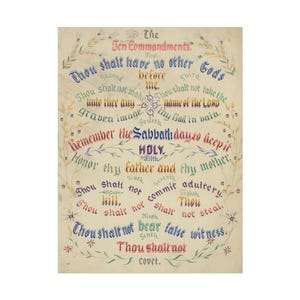 The
Ten Commandments.
First
Thou shalt have no other Gods
before
me.
Second
Third
Thou shalt not make
Thou shalt not take the
unto thee any
name of the Lord
graven image
thy God in vain.
Fourth
Remember thy Sabbath day to keep it
HOLY.
Fifth
Honor thy father and thy mother.
Sixth
Seventh
Thou shalt not
commit adultery.
kill.
Eighth
Thou
Thou shalt not
shalt not steal.
Ninth
Thou shalt not bear false witness.
Tenth
Thou shalt not
covet.